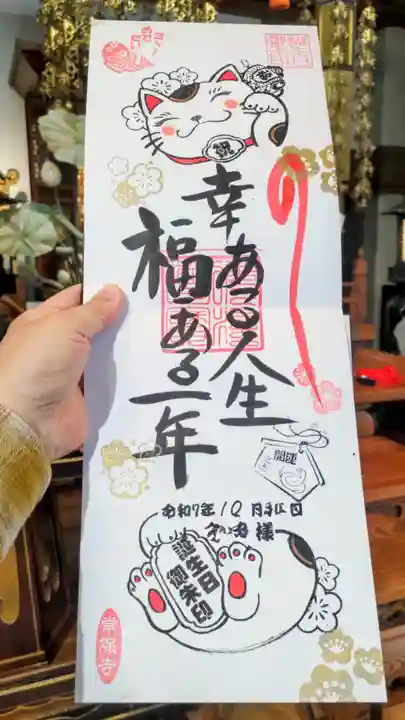 祝
幸ある人生
福ある一年
開運
令和7年10月吉日
様
誕生日
御朱印
常保寺